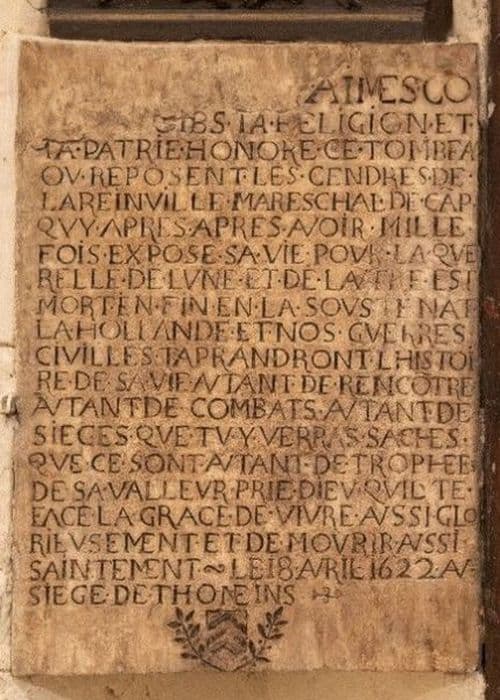 AIMES CO
TA·RELIGION·ET·
TA·PATRIE·HONORE·CE·TOMBEA
OV·REPOSENT·LES·CENDRES·DE·
LAREINVILLE·MARESCHAL·DE·CAP
QVY·APRES·APRES·AVOIR·MILLE
FOIS·EXPOSE·SA·VIE·POVR·LA·QVE
RELLE·DE·LVNE·ET·DE·LAVTRE·EST
MORT·EN·FIN·EN·LA·SOVSTENAT
LA·HOLLANDE·ET·NOS·GVERRES
CIVILLES·TAPRANDRONT·LHISTOI
RE·DE·SA·VIE·AVTANT·DE·RENCOTRE
AVTANT·DE COMBATS·AVTANT·DE
SIEGES·QVE·TV·Y·VERRAS·SACHES·
QVE·CE·SONT·AVTANT·DE·TROPHEE
DE·SA·VALLEVR·PRIE·DIEV·QVIL·TE·
FACE·LA·GRACE·DE·VIVRE·AVSSI·GLO
RIEVSEMENT·ET·DE·MOVRIR·AVSSI
SAINTEMENT ~ LE 18 AVRIL 1622 AV
SIEGE·DE·THONEINS